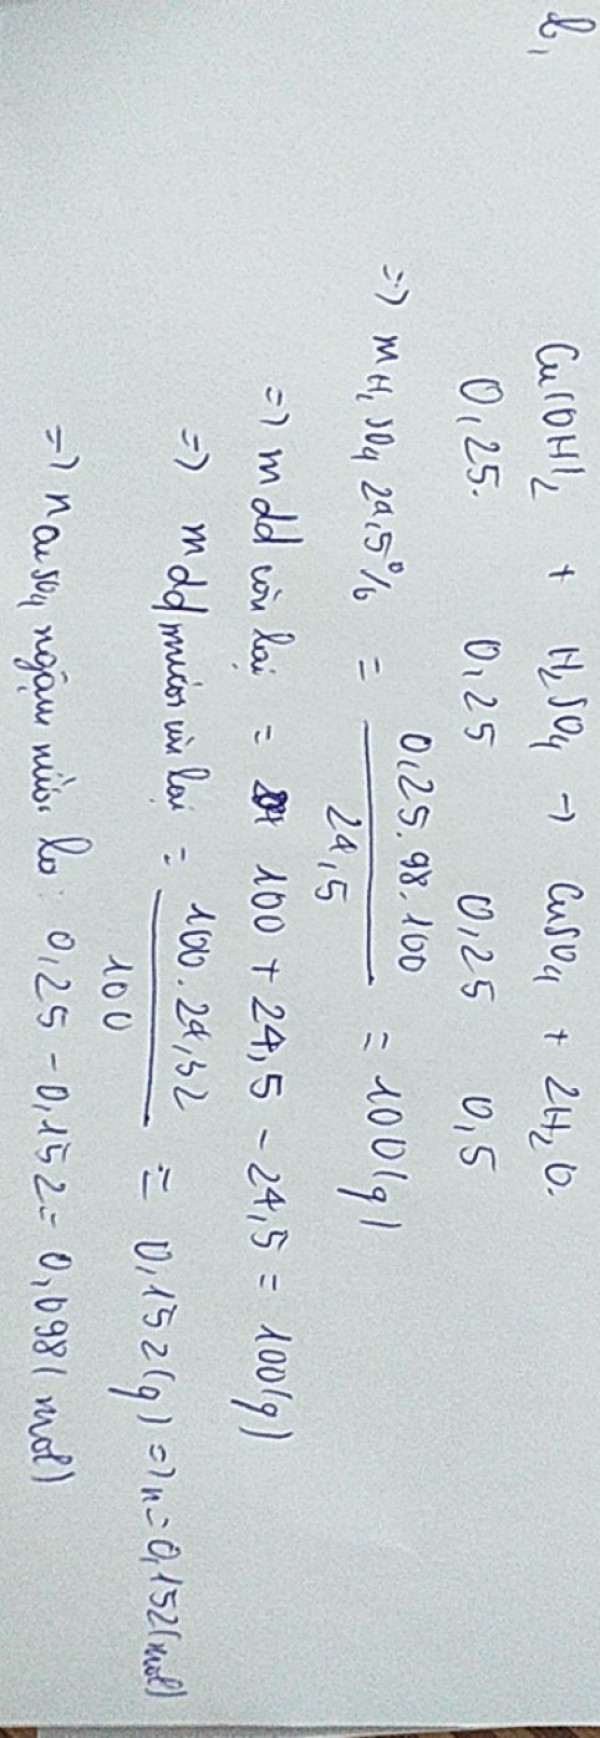 b,
Cu(OH)2 + H2SO4 → CuSO4 + 2H2O.
0,25. 0,25 0,25 0,5
=> mH2SO4 24,5% = 0,25.98.100 / 24,5 = 100(g)
=> mdd còn lại = 100 + 24,5 - 24,5 = 100(g)
=> mdd muối còn lại = 100.24,32 / 100 = 0,152(g) => n = 0,152(mol)
=> nCuSO4 ngậm nước là: 0,25 - 0,152 = 0,098(mol)